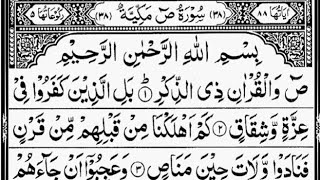 اٰيَاتُهَا ٨٨ (٣٨) سُوْرَةُ صٓ مَكِّيَّةٌ (٣٨) رُكُوْعَاتُهَا ٥
بِسْمِ اللّٰهِ الرَّحْمٰنِ الرَّحِيْمِ
صٓ وَالْقُرْاٰنِ ذِى الذِّكْرِ ① بَلِ الَّذِيْنَ كَفَرُوْا فِىْ
عِزَّةٍ وَّشِقَاقٍ ② كَمْ اَهْلَكْنَا مِنْ قَبْلِهِمْ مِّنْ قَرْنٍ
فَنَادَوْا وَّلَاتَ حِيْنَ مَنَاصٍ ③ وَعَجِبُوْٓا اَنْ جَآءَهُمْ